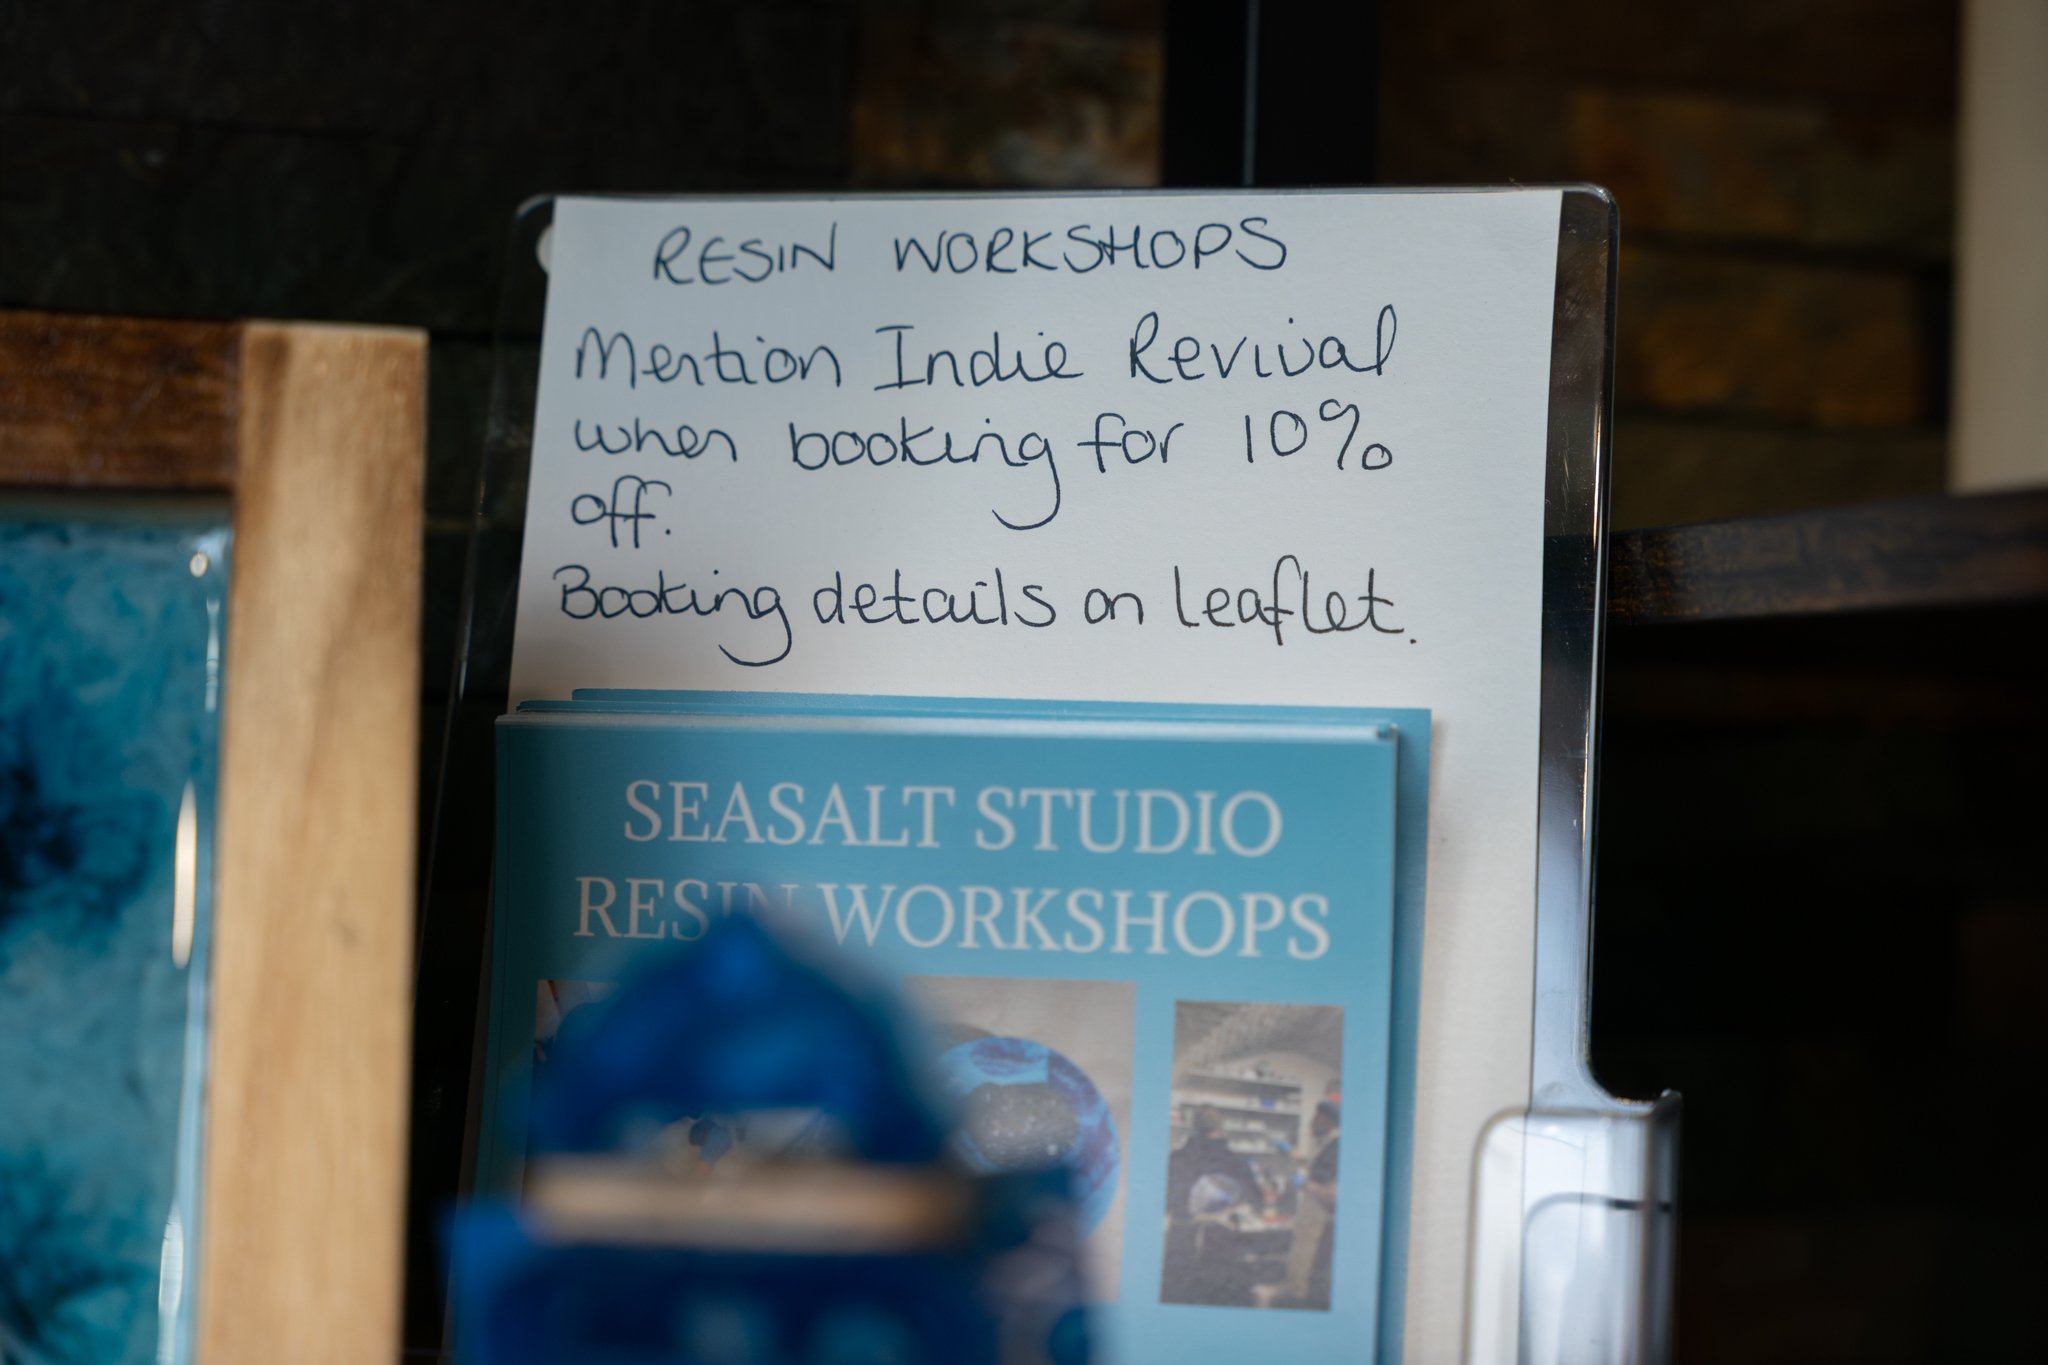 RESIN WORKSHOPS
Mention Indie Revival
when booking for 10%
off.
Booking details on leaflet.
SEASALT STUDIO
RESIN WORKSHOPS